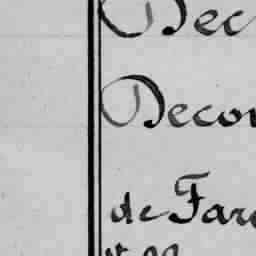 Dec
Decor
de Fare